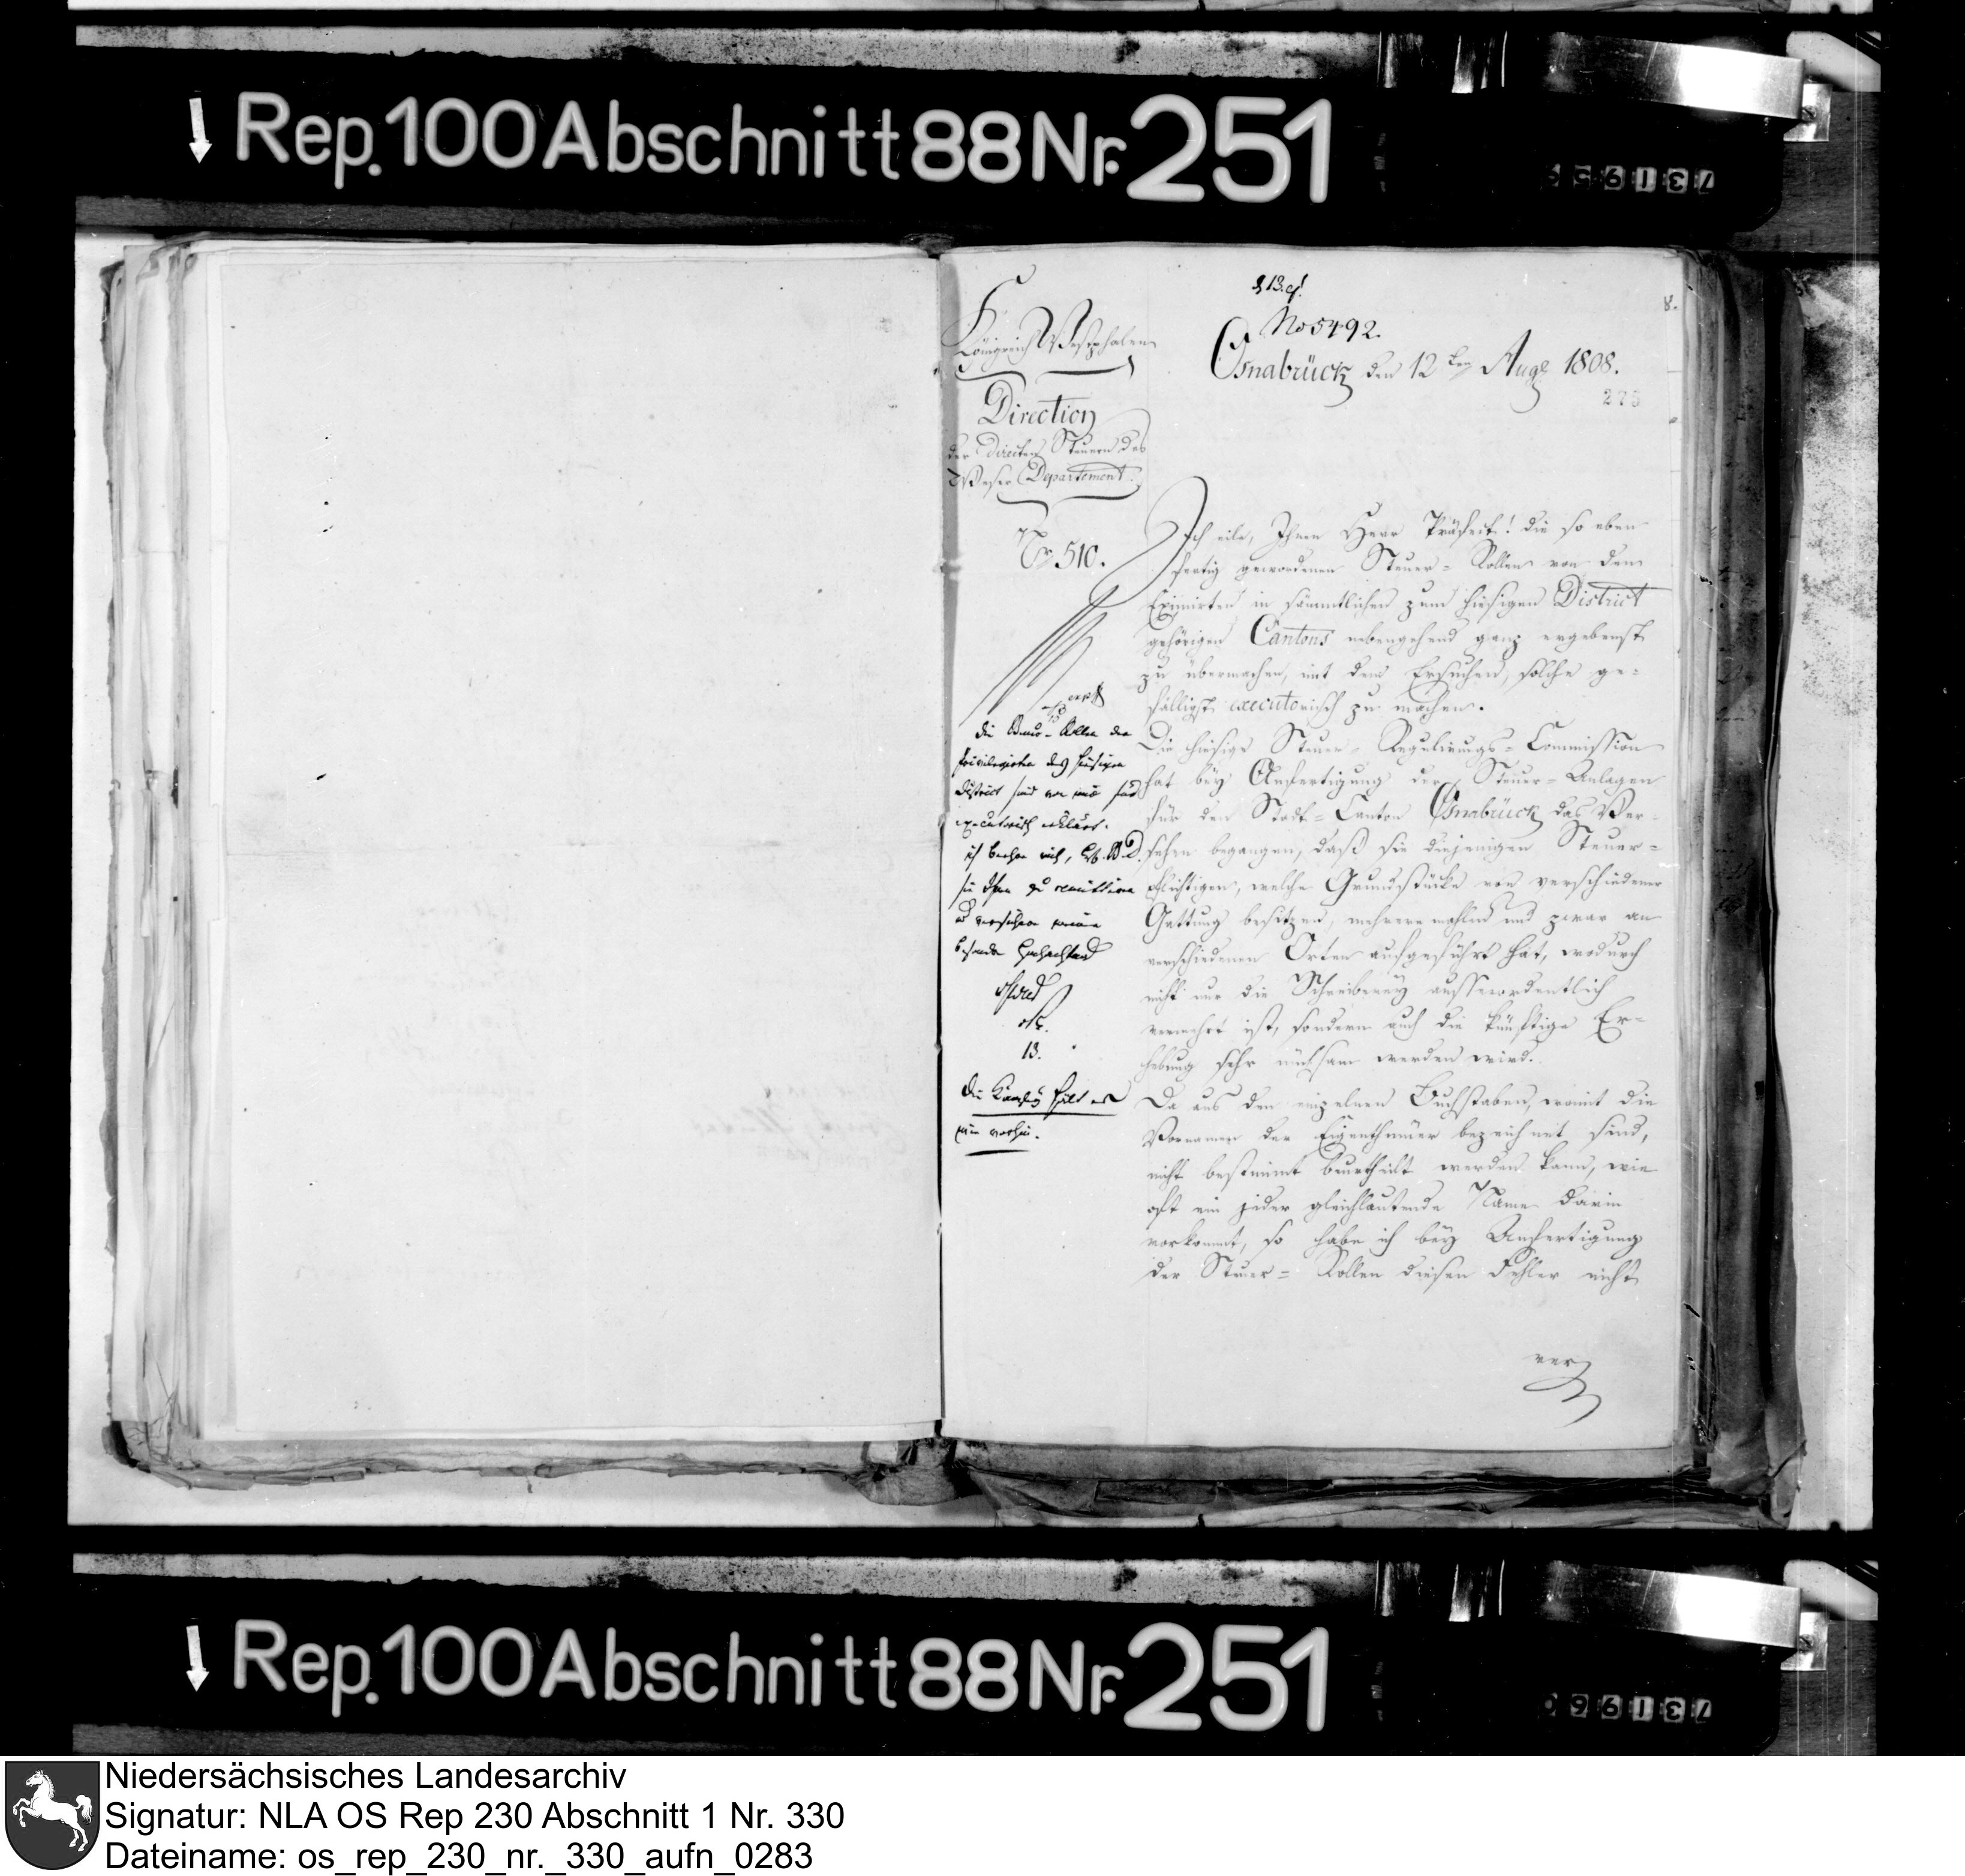 Rep. 100 Abschnitt 88 Nr. 251
No 5492.
Osnabrück den 12ten Aug. 1808.
8.
275
Königreich Westphalen
Direction
der directen Steuern des
Weser Departement.
No 510.
Ich eile, Ihnen Herr Präfect! die so eben
fertig gewordenen Steuer-Rollen von den
Eximirten in sämmtlichen zum hiesigen District
gehörigen Cantons nebengehend ganz ergebenst
zu übermachen, mit dem Ersuchen, solche ge-
fälligst executorisch zu machen.
Die hiesige Steuer-Regulirungs-Commission
hat bey Anfertigung der Steuer-Anlagen
für den Stadt-Canton Osnabrück das Ver-
sehen begangen, daß sie diejenigen Steuer-
pflichtigen, welche Grundstücke von verschiedener
Gattung besitzen, mehrere mahlen und zwar an
verschiedenen Orten aufgeführt hat, wodurch
nicht nur die Schreiberey ausserordentlich
vermehrt ist, sondern auch die künftige Er-
hebung sehr mühsam werden wird.
Da aus den einzelnen Buchstaben, womit die
Vornamen der Eigenthümer bezeichnet sind,
nicht bestimmt beurtheilt werden kann, wie
oft ein jeder gleichlautende Name darin
vorkommt, so habe ich bey Anfertigung
der Steuer-Rollen diesen Fehler nicht
ver
die Steuer-Rollen der
Privilegirten des hiesigen
District sind von mir für
executorisch erklärt.
ich beehre mich,
sie Ihnen zu remittiren
und versichere meine
besondere Hochachtung
13.
Rep. 100 Abschnitt 88 Nr. 251
Niedersächsisches Landesarchiv
Signatur: NLA OS Rep 230 Abschnitt 1 Nr. 330
Dateiname: os_rep_230_nr._330_aufn_0283